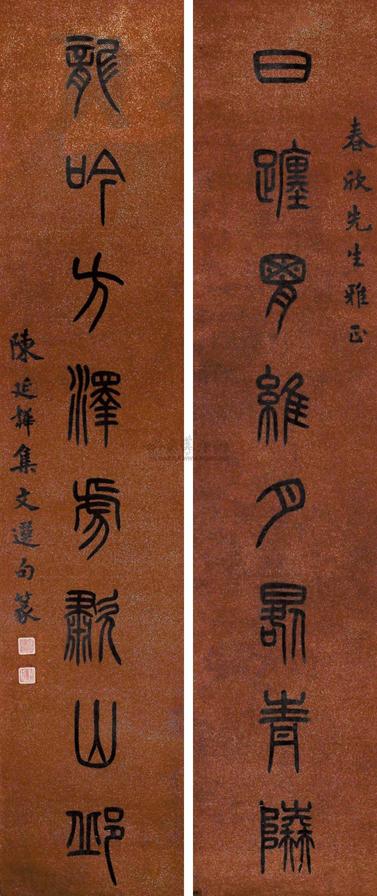 春欣先生雅正
日躔胃維月晷青陸
龍吟方澤虎歗山邱
陳延韡集文選句篆